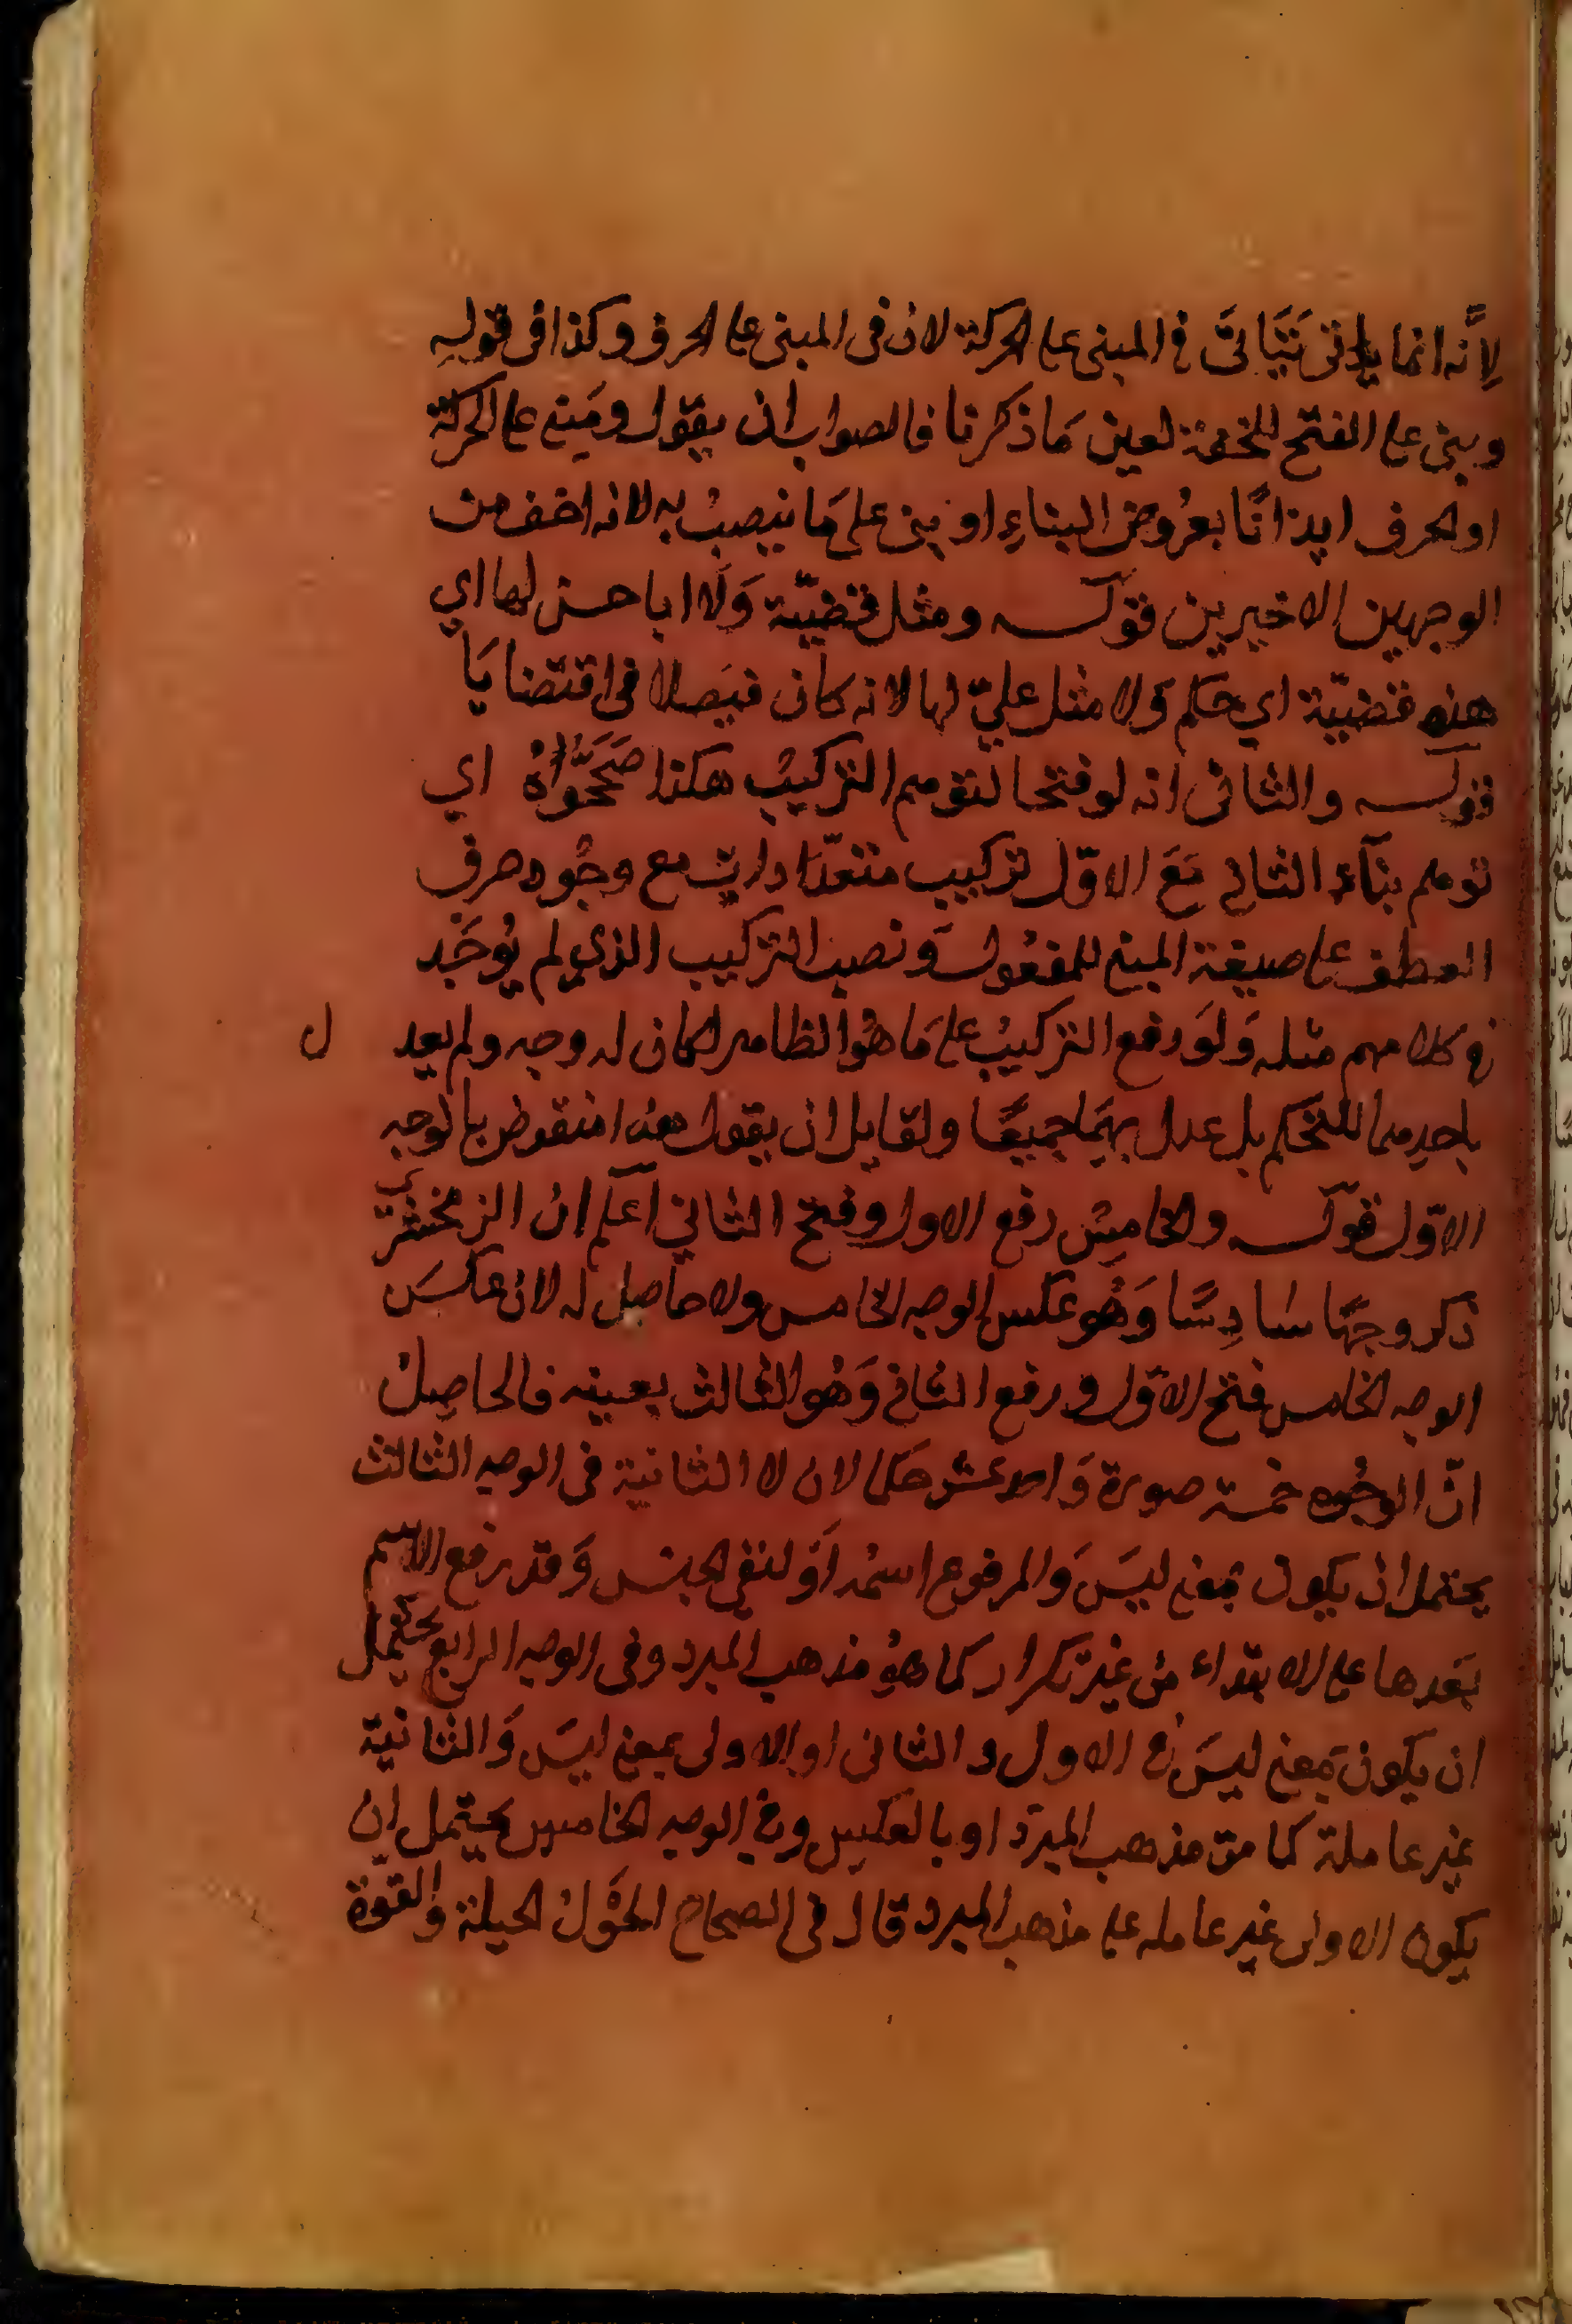 لِأَنَّه انما ياتى يَتَأَتَّى في المبنى على الحركة لان في المبنى على الحرف وكذا في قولِهِ
وبنى على الفتح للخفة لعين مَا ذكرنا فالصواب ان يقول ومَبنى على الحركة
او الحرف ايذانًا بعرُوض البناءِ او بنى على مَا ينصبُ به لانه اخف من
الوجهين الاخيرين قوله ومثل قضيّة وَلا ابا حسن لها اي
هذه قضيّة اي حكم وَلا مثل عليّ لها لانه كان فيصلا في اقتضايَا
قوله والثانى انه لو فتحا لتوهم التركيبُ هكذا صَحَّحَوُاهُ اي
توهم بنآء الثاني مَعَ الاوّل تركيب متعدّدات مع وجُود حرف
العطف على صيغة المبنى للمفعُول وَنصب التركيب الذي لم يُوجَد
في كلامهم مثله وَلَو رفع التركيبُ على مَا هُو الظاهر لكان له وجه ولم يعد ل
باحدِهما للتحكم بل عدل بهمَا جميعًا ولقايل ان يقول هذا منقوض بالوجه
الاوّل قوله والخامسُ رفع الاول وفتح الثاني اعلم ان الزمخشرى
ذكر وجهًا سَادِسًا وَهُو عكس الوجه الخامس ولا حاصل له لان عكسَ
الوجه الخامس فتح الاوّل ورفع الثاني وَهُو الثالث بعينه فالحاصِلُ
انّ الوجُوه خمسة صورة وَاحد عشر حكما لان لا الثانية في الوجه الثالث
يحتمل ان يكون بمعنى ليسَ وَالمرفوع اسمُه اوَ لنفى الجنس وَقد رفع الاسم
بَعدها على الابتداء مِن غير تكرار كما هُو مذهب المبرد وفي الوجه الرابع يحتمل
ان يكون بمَعنى ليسَ في الاول والثانى او الاولى بمعنى ليسَ وَالثانية
غير عاملة كما مرّ مذهب المبرد او بالعكس وفي الوجه الخامس يحتمل ان
يكون الاولى غير عامله على مذهب المبرد قال في الصحاح الحَوْلُ الحيلة وَالقوّة